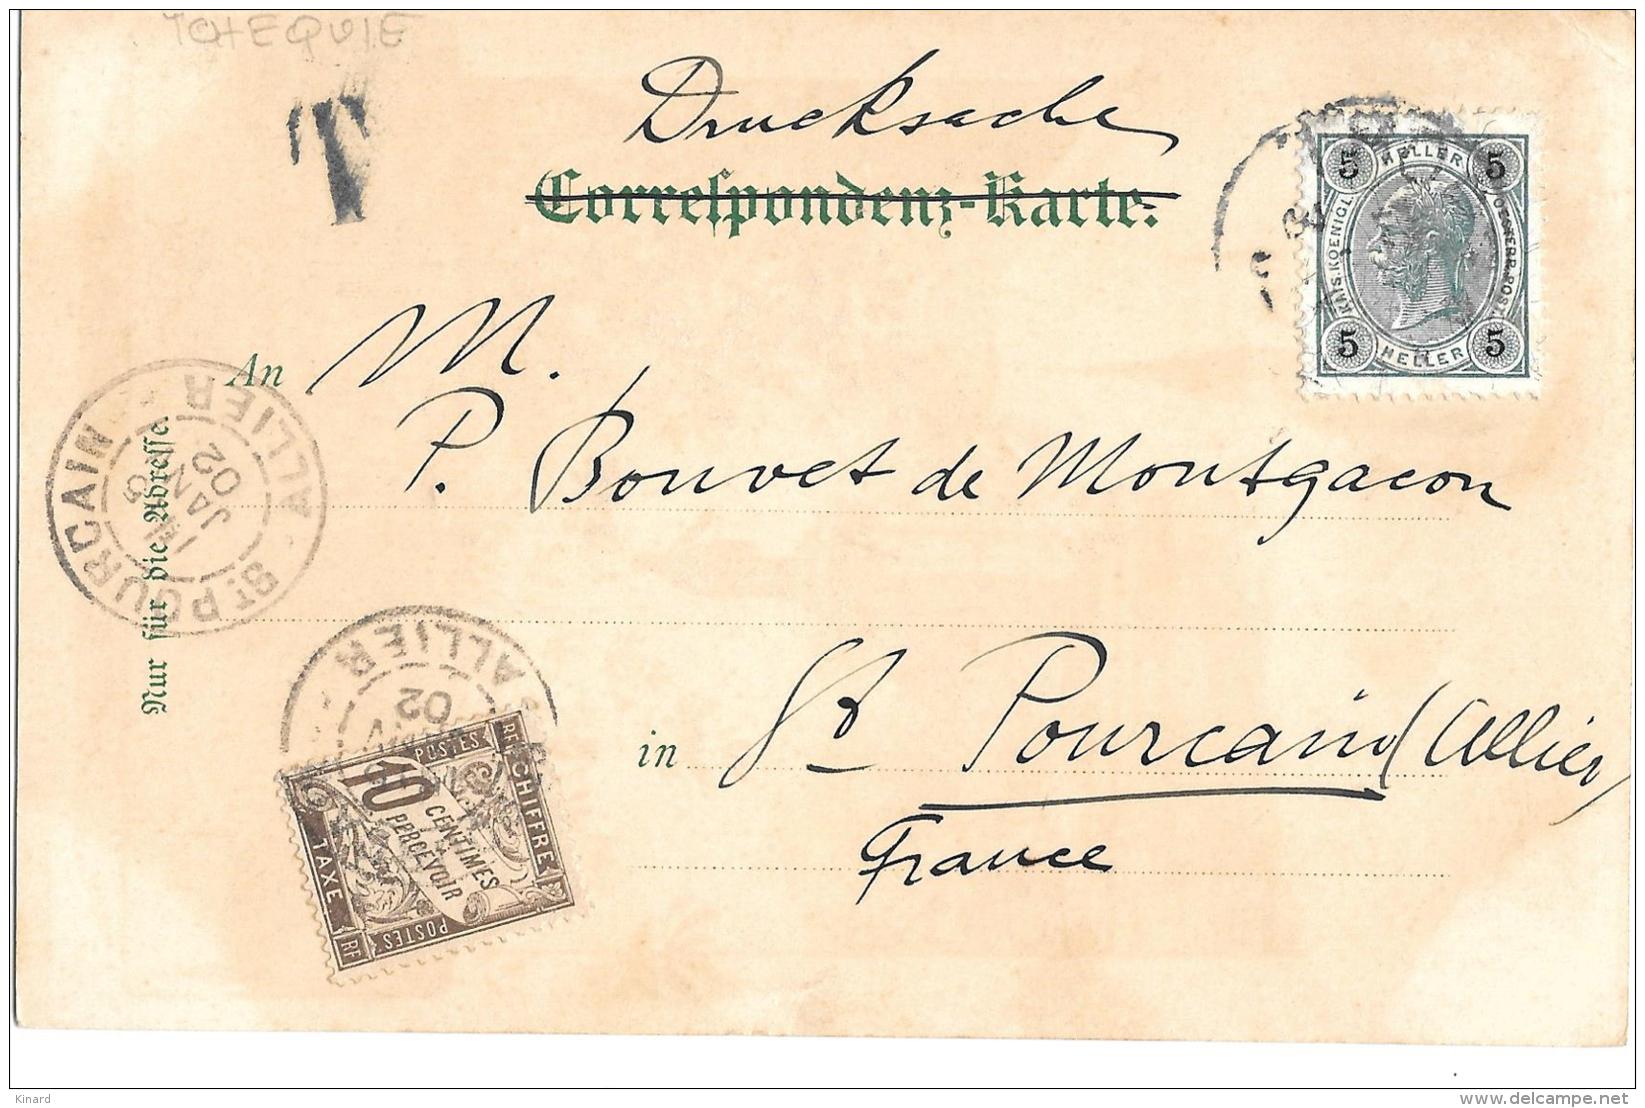 TCHEQUIE
T
Drucksache
Correspondenz-Karte.
5 HELLER 5
KAIS. KOENIGL.
OESTERR. POST.
5 HELLER 5
An M.
P. Bouvet de Montgacon
Nur für die Adresse
ST POURCAIN
ALLIER
5
JANV
02
ALLIER
02
in St Pourcain (Allier)
France
RF POSTES RF
CHIFFRE
10
CENTIMES
A
PERCEVOIR
TAXE
RF POSTES
Kinard
www.delcampe.net